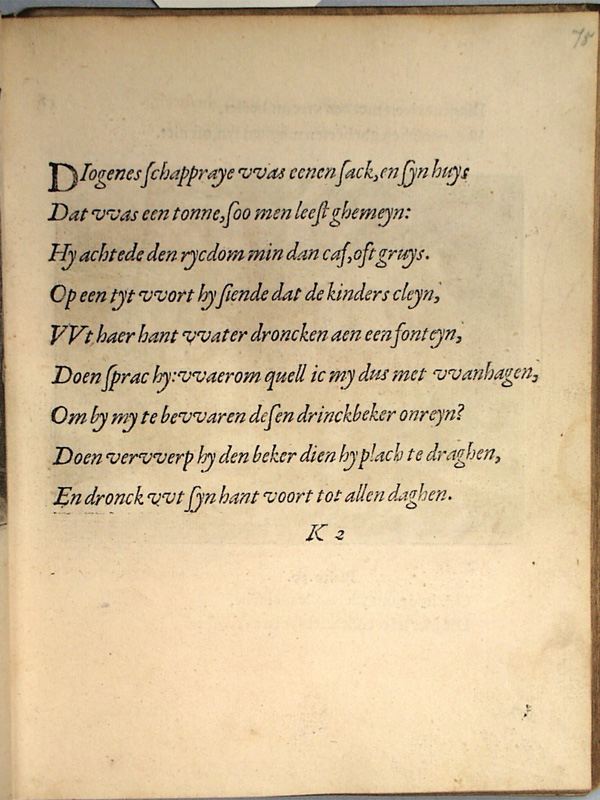 75
DIogenes ſchappraye vvas eenen ſack,en ſyn huys
Dat vvas een tonne,ſoo men leeſt ghemeyn:
Hy achtede den rycdom min dan caf,oft gruys.
Op een tyt vvort hy ſiende dat de kinders cleyn,
VVt haer hant vvater droncken aen een fonteyn,
Doen ſprac hy:vvaerom quell ic my dus met vvanhagen,
Om by my te bevvaren deſen drinckbeker onreyn?
Doen vervverp hy den beker dien hy plach te draghen,
En dronck vvt ſyn hant voort tot allen daghen.
K 2